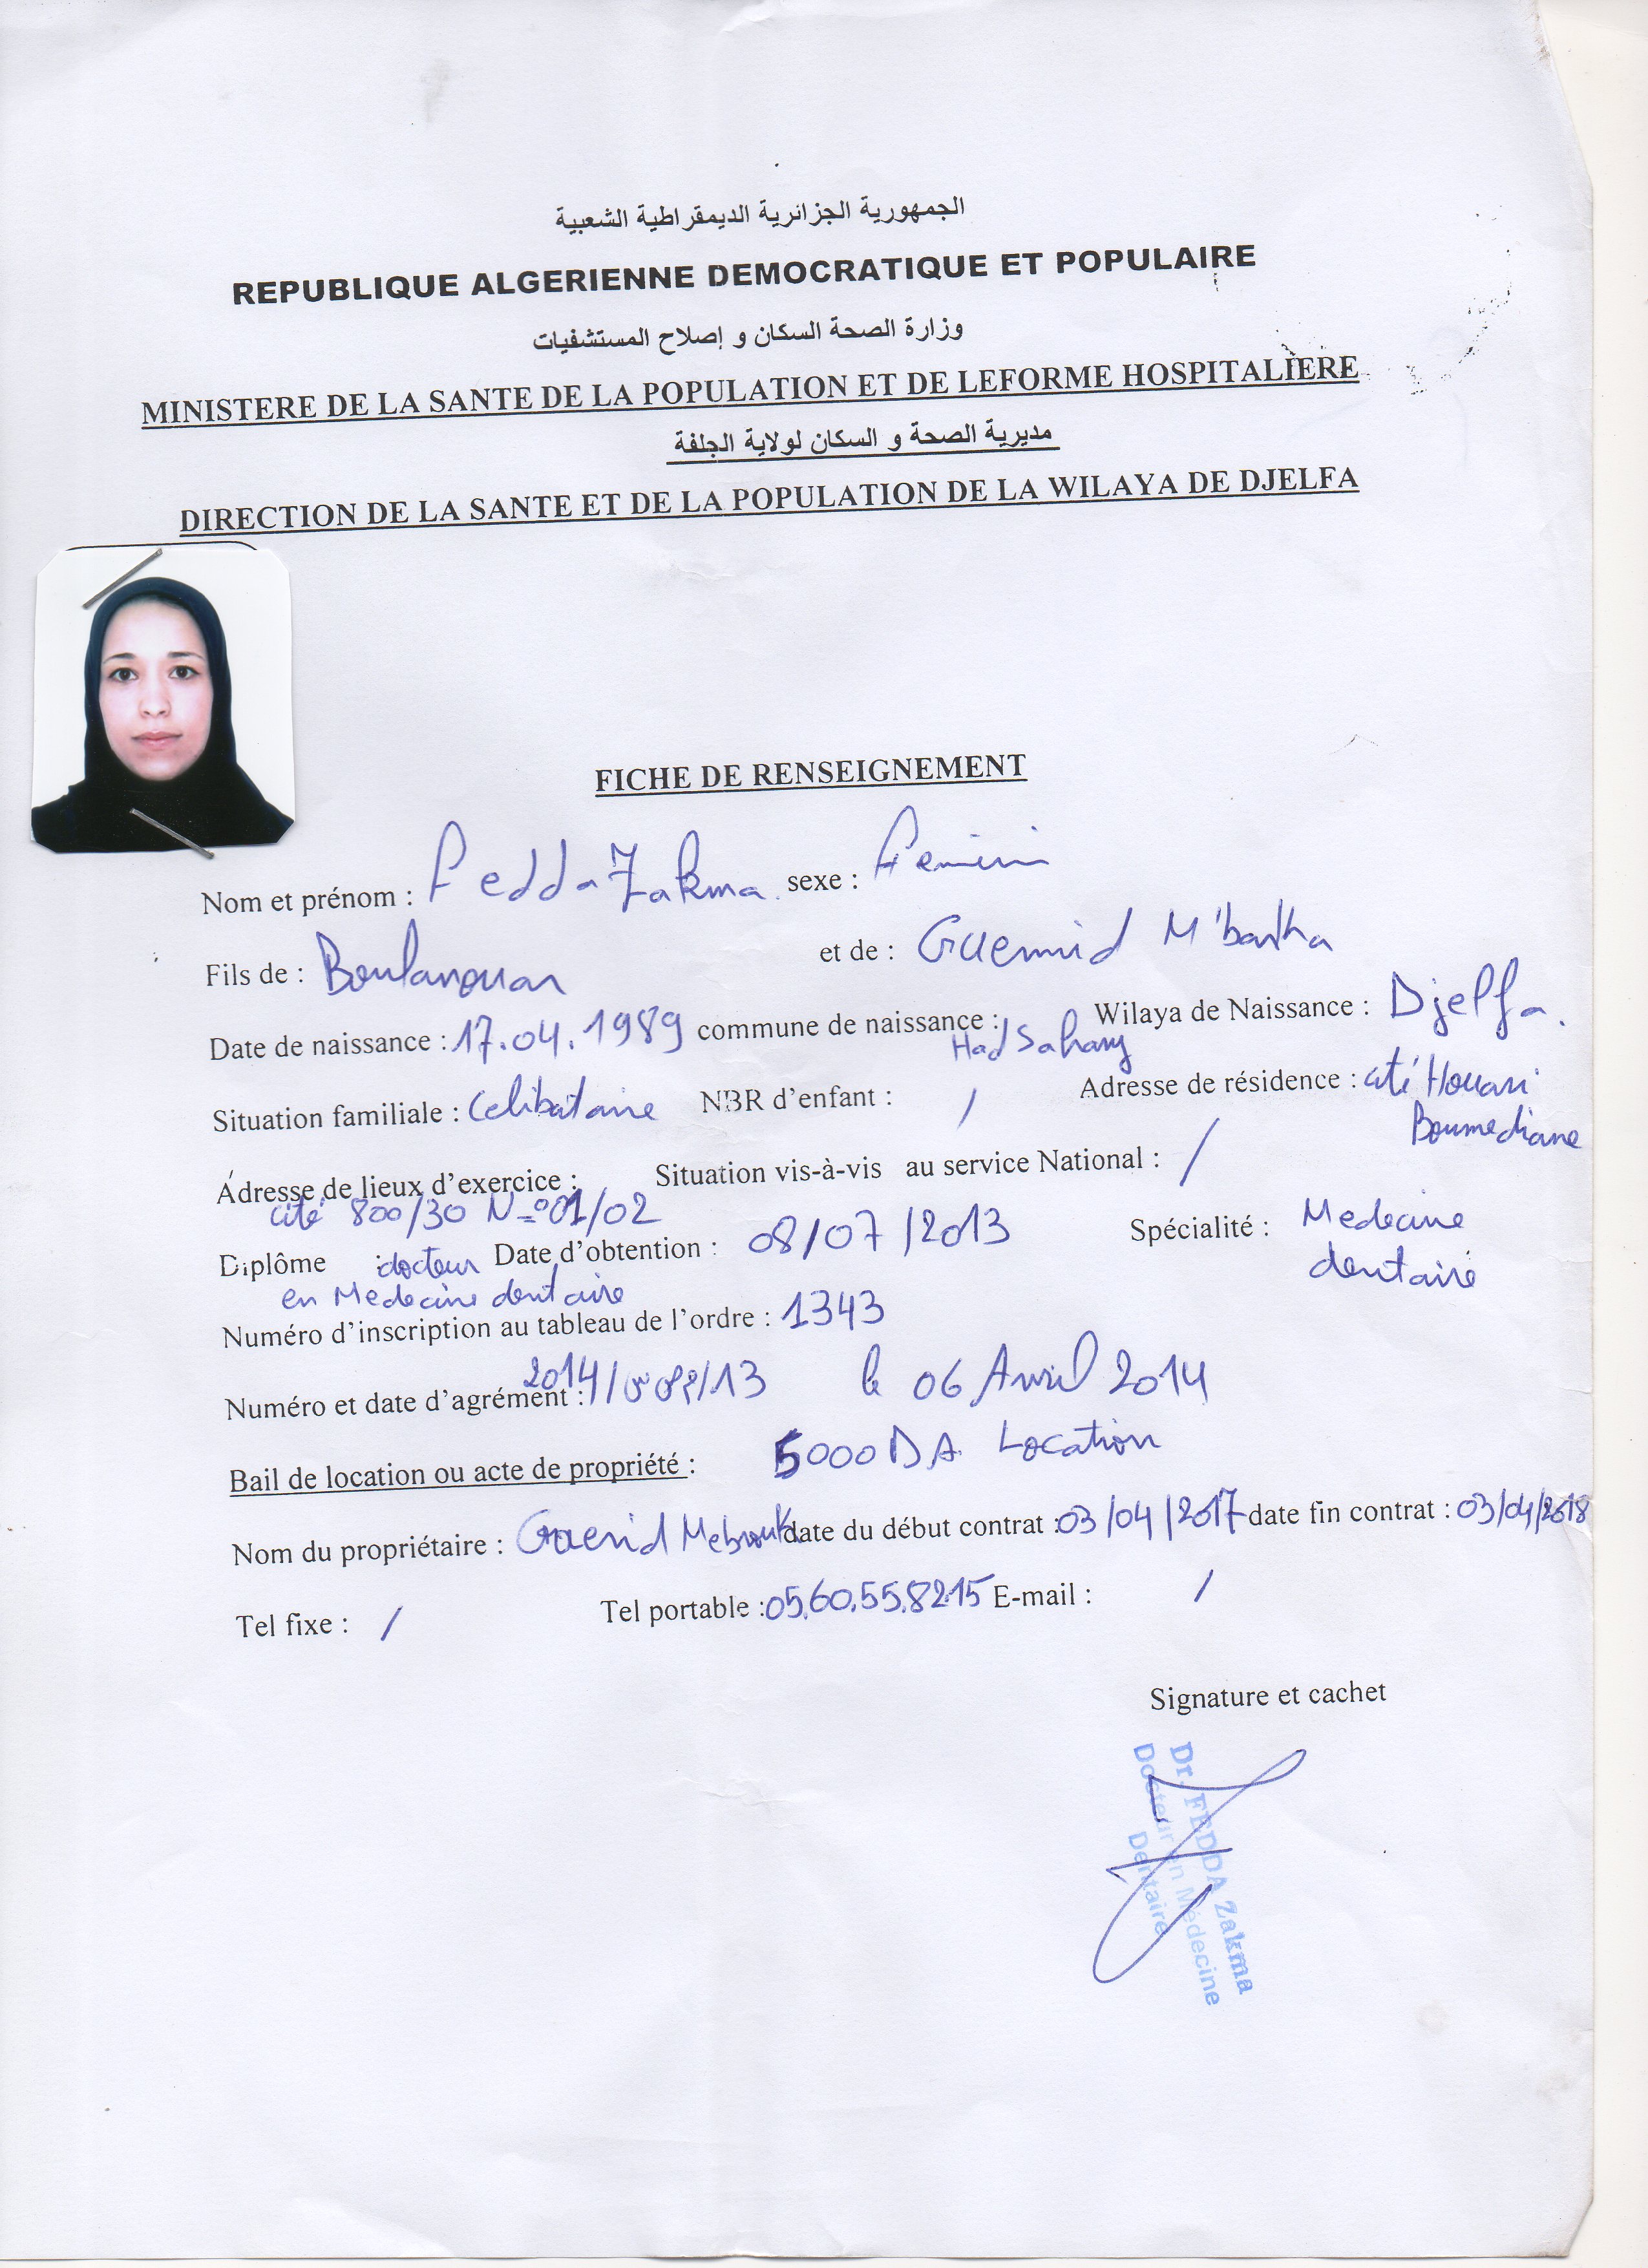 الجمهورية الجزائرية الديمقراطية الشعبية
REPUBLIQUE ALGERIENNE DEMOCRATIQUE ET POPULAIRE
وزارة الصحة السكان و إصلاح المستشفيات
MINISTERE DE LA SANTE DE LA POPULATION ET DE LEFORME HOSPITALIERE
مديرية الصحة و السكان لولاية الجلفة
DIRECTION DE LA SANTE ET DE LA POPULATION DE LA WILAYA DE DJELFA
FICHE DE RENSEIGNEMENT
Nom et prénom : Fedda Zakma. sexe : Feminin
Fils de : Boulanouar et de : Guemid M'barka
Date de naissance : 17.04.1989 commune de naissance : Had Sahary Wilaya de Naissance : Djelfa.
Situation familiale : Celibataire NBR d'enfant : / Adresse de résidence : cité Houari
Boumediane
Adresse de lieux d'exercice : Situation vis-à-vis au service National : /
cité 800/30 N=°01/02
Diplôme : docteur Date d'obtention : 08/07/2013 Spécialité : Medecine
en Medecine dentaire dentaire
Numéro d'inscription au tableau de l'ordre : 1343
Numéro et date d'agrément : 2014/ /13 le 06 Avril 2014
Bail de location ou acte de propriété : 5000 DA Location
Nom du propriétaire : Guerid Mebrouk date du début contrat : 03/04/2017 date fin contrat : 03/04/2018
Tel fixe : / Tel portable : 05.60.55.82.15 E-mail : /
Signature et cachet
Dr. FEDDA Zakma
Docteur en Médecine
Dentaire